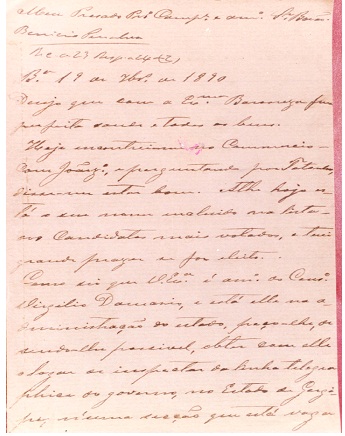 Meu Presado Pr.º Comp.e e am.º Sr. Barão
B.a 19 de de 1890
Desejo que com a Ex.ma Baroneza
perfeita saude e todos os bens.
Hoje encontrei-me no Commercio
com e perguntando por
disseram estar bom. Até hoje es
tá o seu nome incluido na lista
dos Candidatos mais votados, e terei
grande prazer se for eleito.
Como sei que V. Ex.a é am.º do Cons.º
Virgilio Damasio, e está elle na a
dministração do estado, peço-lhe, de
sendo lhe possivel, obter com elle
o lugar de inspector da linha telegra
phica do governo, no Estado de Sergi
pe, n'uma secção que está vaga